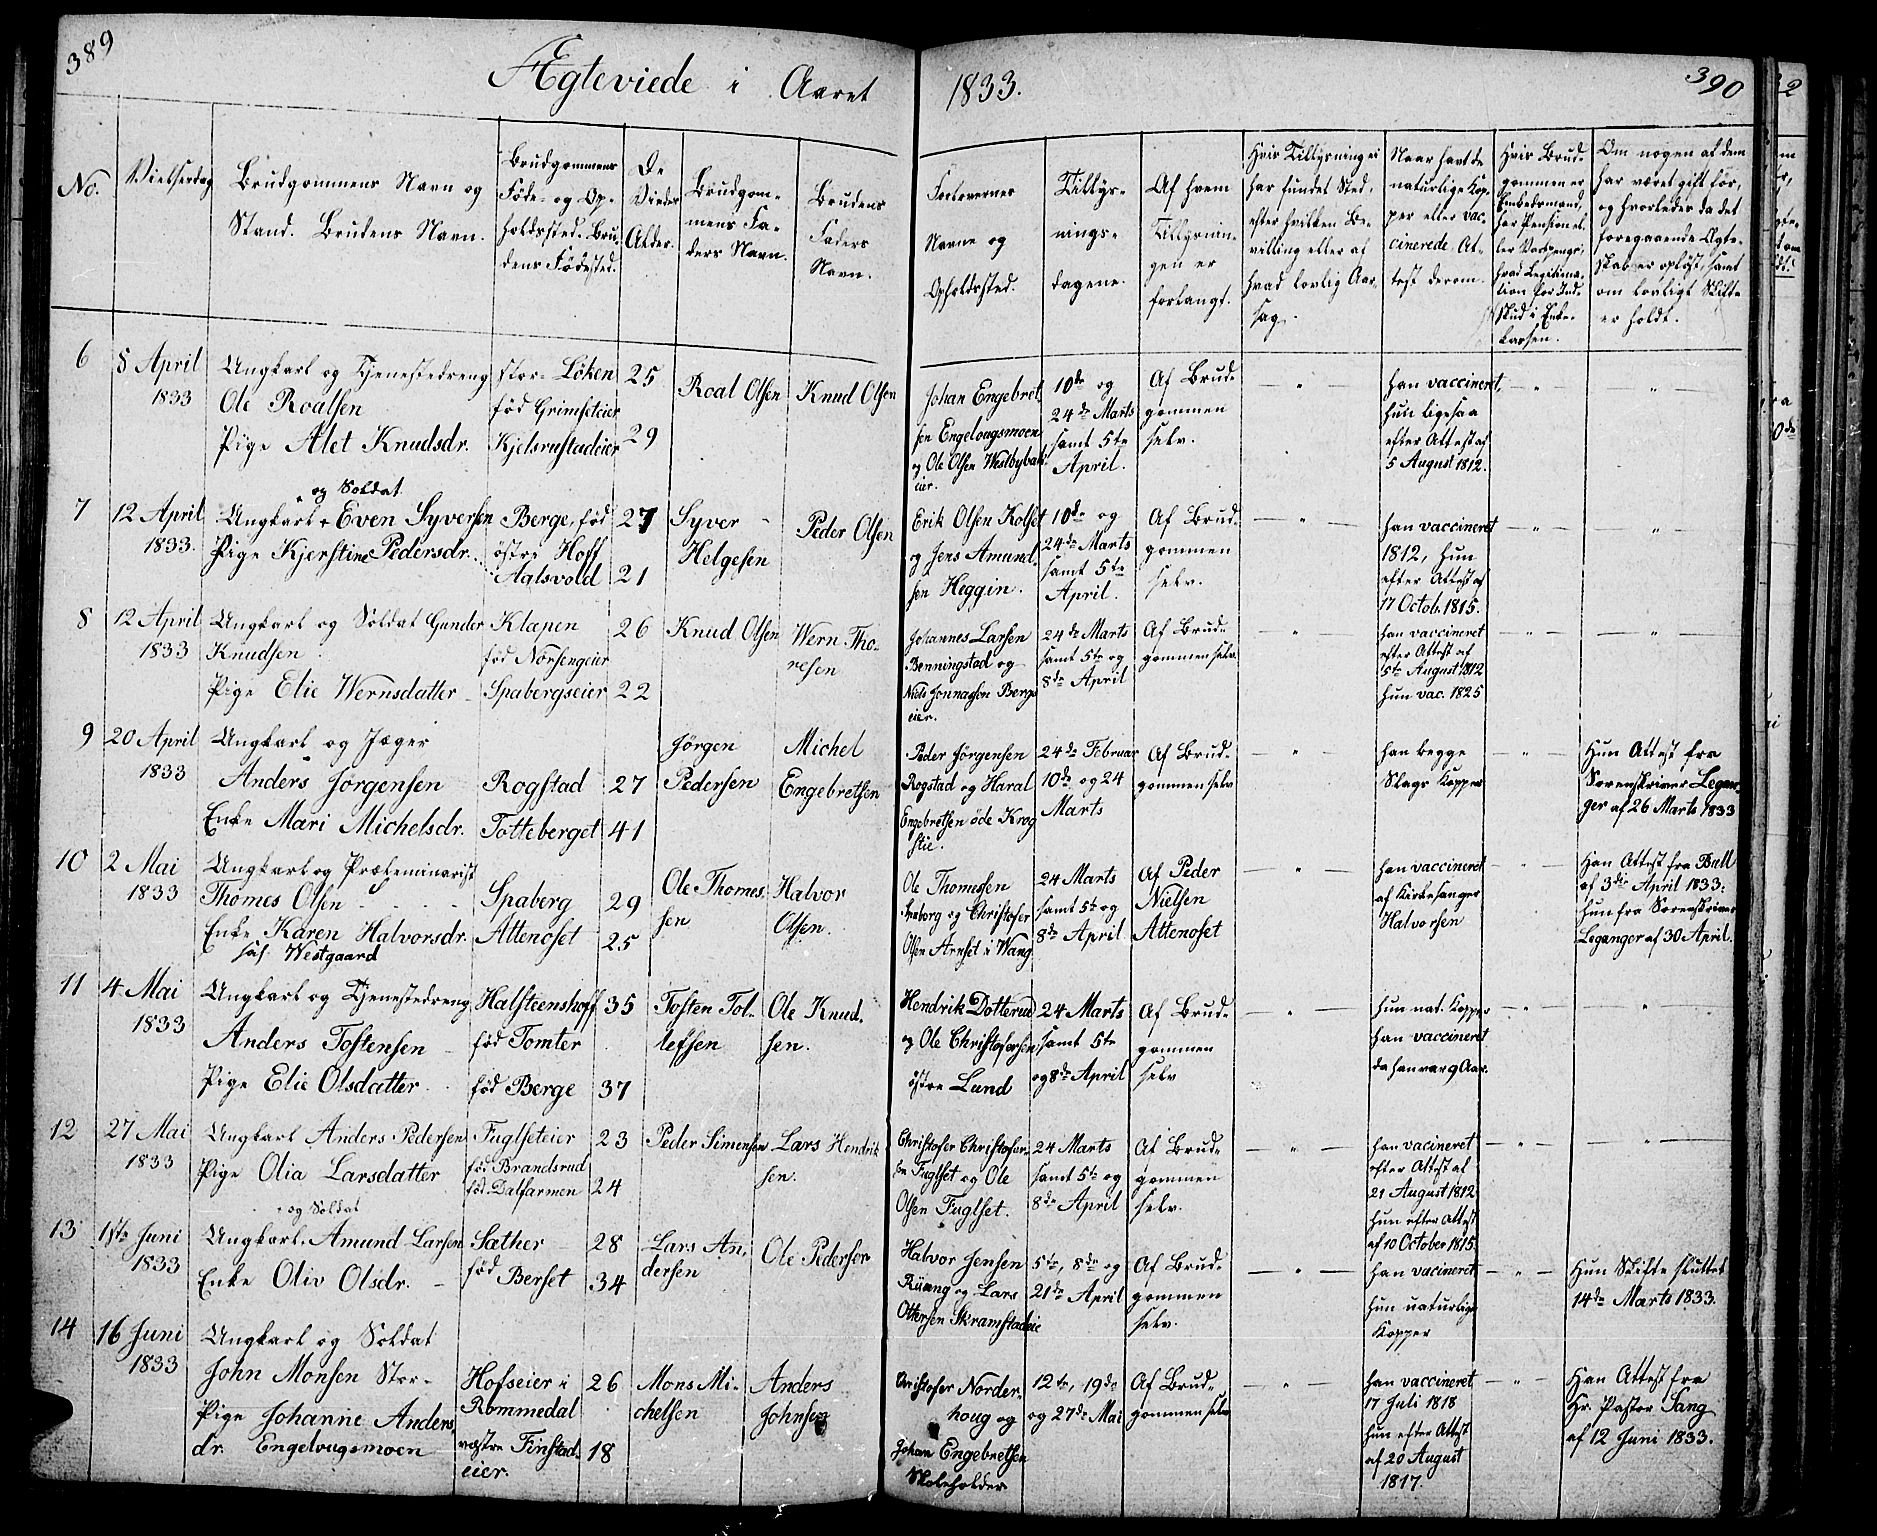 389
Ægteviede i Aaret 1833.
390
No.
Vielsesdag
Brudgommens Navn og
Stand. Brudens Navn.
Brudgommens
Føde- og Op-
holdssted. Bru-
dens Fødested.
De
Viedes
Alder.
Brudgom-
mens Fa-
ders Navn.
Brudens
Faders
Navn.
Forlovernes
Navne og
Opholdssted.
Tillys-
nings-
dagene.
Af hvem
Tillysnin-
gen er
forlangt.
Hvis Tillysning ei
har fundet Sted,
efter hvilken Be-
villing eller af
hvad lovlig Aar-
sag.
Naar havt de
naturlige Kop-
per eller vac-
cinerede. At-
test derom.
Hvis Brud-
gommen er
Embedsmand,
har Pension el-
ler Vartpenge,
hvad Legitima-
tion for Ind-
skud i Enke-
kassen.
Om nogen af dem
har været gift før,
og hvorledes da det
foregaaende Ægte-
skab er opløst, samt
om lovligt Skifte
er holdt.
6
8 April
1833
Ungkarl og Tjenestedreng
Ole Roalsen
Pige Alet Knudsdr.
stor- Löken
fød Grimseteier
Kjelsrustadeier
25
29
Roal Olsen
Knud Olsen
Johan Engebret
sen Engelougsmoen
og Ole Olsen Westbybak
eier.
10de og
24de Marts
samt 5te
April.
Af Brud-
gommen
selv.
han vaccineret,
hun ligesaa
efter Attest af
5 August 1812.
7
12 April
1833.
og Soldat
Ungkarl Even Syversen
Pige Kjerstine Pedersdr.
Berge, fød
östre Hoff
Aglsvold
27
21
Syver
Helgesen
Peder Olsen
Erik Olsen Kolset
og Jens Amund-
sen Heggin.
10de og
24de Marts
samt 5te
April.
Af Brud-
gommen
selv.
han vaccineret
1812, hun
efter Attest af
17 Octob. 1815.
8
12 April
1833
Ungkarl og Soldat Gunder
Knudsen
Pige Elie Wernsdatter
Klapen
fød Norsengeier
Spabergseier
26
22
Knud Olsen
Wern Tho-
resen
Johannes Larsen
Benningstad og
Niels Jonnasen Berge
eier.
24de Marts
samt 5te og
8de April
Af Brud-
gommen selv
han vaccineret
efter Attest af
5te August 1812
hun vac. 1825
9
20 April
1833
Ungkarl og Jæger
Anders Jörgensen
Enke Mari Michelsdr.
Rogstad
Totteberget
27
41
Jörgen
Pedersen
Michel
Engebretsen
Peder Jörgensen
Rogstad og Haral
Engebretsen öde Krog
stie.
24de Februar
10de og 24
Marts
Af Brud-
gommen selv
han begge
Slags Kopper
Hun Attest fra
Sorenskriver Legan-
ger af 26 Marts 1833
10
2 Mai
1833
Ungkarl og Præleminarist
Thomes Olsen
Enke Karen Halvorsdr.
Westgaard
Spaberg
Attenoset
29
25
Ole Thomes-
sen
Halvor
Olsen.
Ole Thomessen
og Christofer
Olsen Arnset i Wang
24 Marts
samt 5te og
8de April
Af Peder
Nielsen
Attenoset
han vaccineret
af Kirkesanger
Halvorsen
Han Attest fra Bull
af 3die April 1833.
hun fra Sorenskriver
Leganger af 30 April.
11
4 Mai
1833
Ungkarl og Tjenestedreng
Anders Tostensen
Pige Elie Olsdatter
Halsteenshoff
fød Tomter
fød Berge
35
37
Tosten Tol-
lefsen
Ole Knud-
sen.
Hendrik Dotterud
og Ole Christofersen
östre Lund
24 Marts
samt 5te
og 8de April
Af Brud-
gommen
selv
hun nat. Kopper
han vaccineret
da han var 9 Aar.
12
27 Mai
1833
Ungkarl Anders Pedersen
Pige Olia Larsdatter
Fuglseteier
fød Brandsrud
fød. Dalfarmen
23
24
Peder Simensen
Lars Hendrik
sen.
Christofer Christofer-
sen Fuglset og Ole
Olsen Fuglset.
24 Marts
samt 5te og
8de April
Af Brud-
gommen
selv.
han vacineret
efter Attest af
21 August 1812
hun efter Attest
af 10 October 1815.
13
1ste Juni
1833
og Soldat
Ungkarl Amund Larsen
Enke Oliv Olsdr.
Sæther
fød Berset
28
34
Lars An-
dersen
Ole Pedersen
Halvor Jensen
Rüang og Lars
Ottersen Skramstadeie
5te, 8de og
21de April
Af Brud-
gommen
selv.
han vacineret
hun naturlige
Kopper
Hun Skifte sluttet
14de Marts 1833.
14
16 Juni
1833
Ungkarl og Soldat
John Monsen Stor-
Pige Johanne Anders
dr. Engelougsmoen
Hofseier i
Rommedal
vestre Finstad-
eier.
26
18
Mons Mi-
chelsen
Anders
Johnsen
Christofer Norder-
houg og
Johan Engebretsen
Skoleholder
12te, 19de
og 27de Mai
Af Brud-
gommen selv
han vaccineret
17 Juli 1818
hun efter Attest
af 20 August
1817.
Han Attest fra
Hr. Pastor Sang
af 12 Juni 1833.